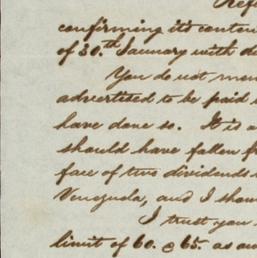 Refe
confirming it's conten
of 30.th January with d
You do not men
advertised to be paid
have done so. It is a
should have fallen f
face of two dividends
Venezuela, and I shou
I trust you
limit of 60. @ 65. as au